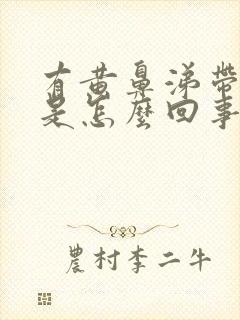 有黄鼻涕带
是怎麼回事
農村李二牛